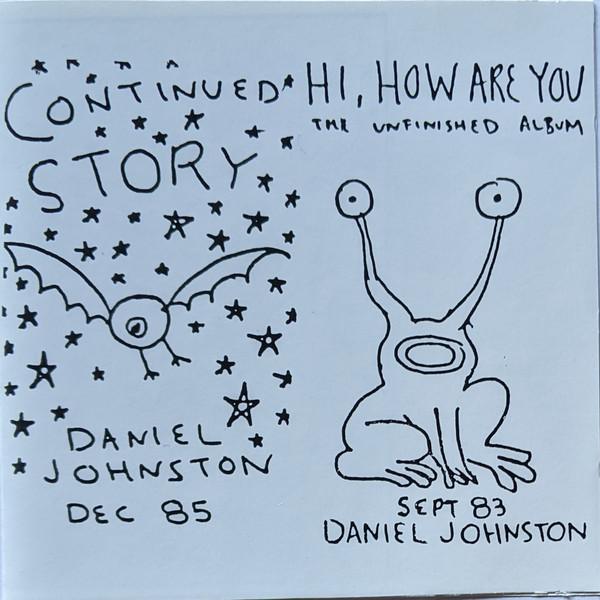 CONTINUED
STORY
DANIEL
JOHNSTON
DEC 85
HI, HOW ARE YOU
THE UNFINISHED ALBUM
SEPT 83
DANIEL JOHNSTON